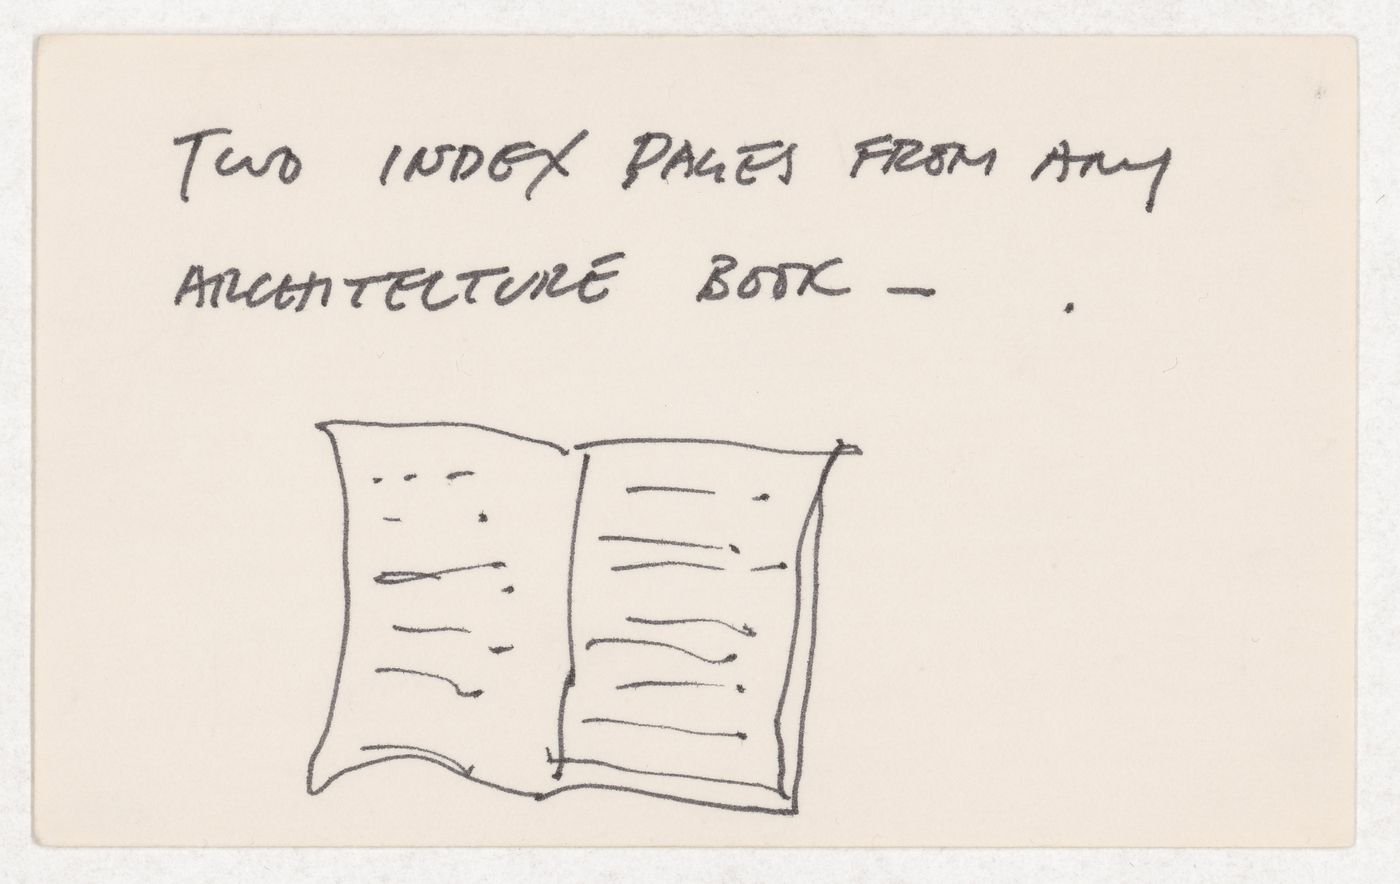 TWO INDEX PAGES FROM ANY
ARCHITECTURE BOOK — .